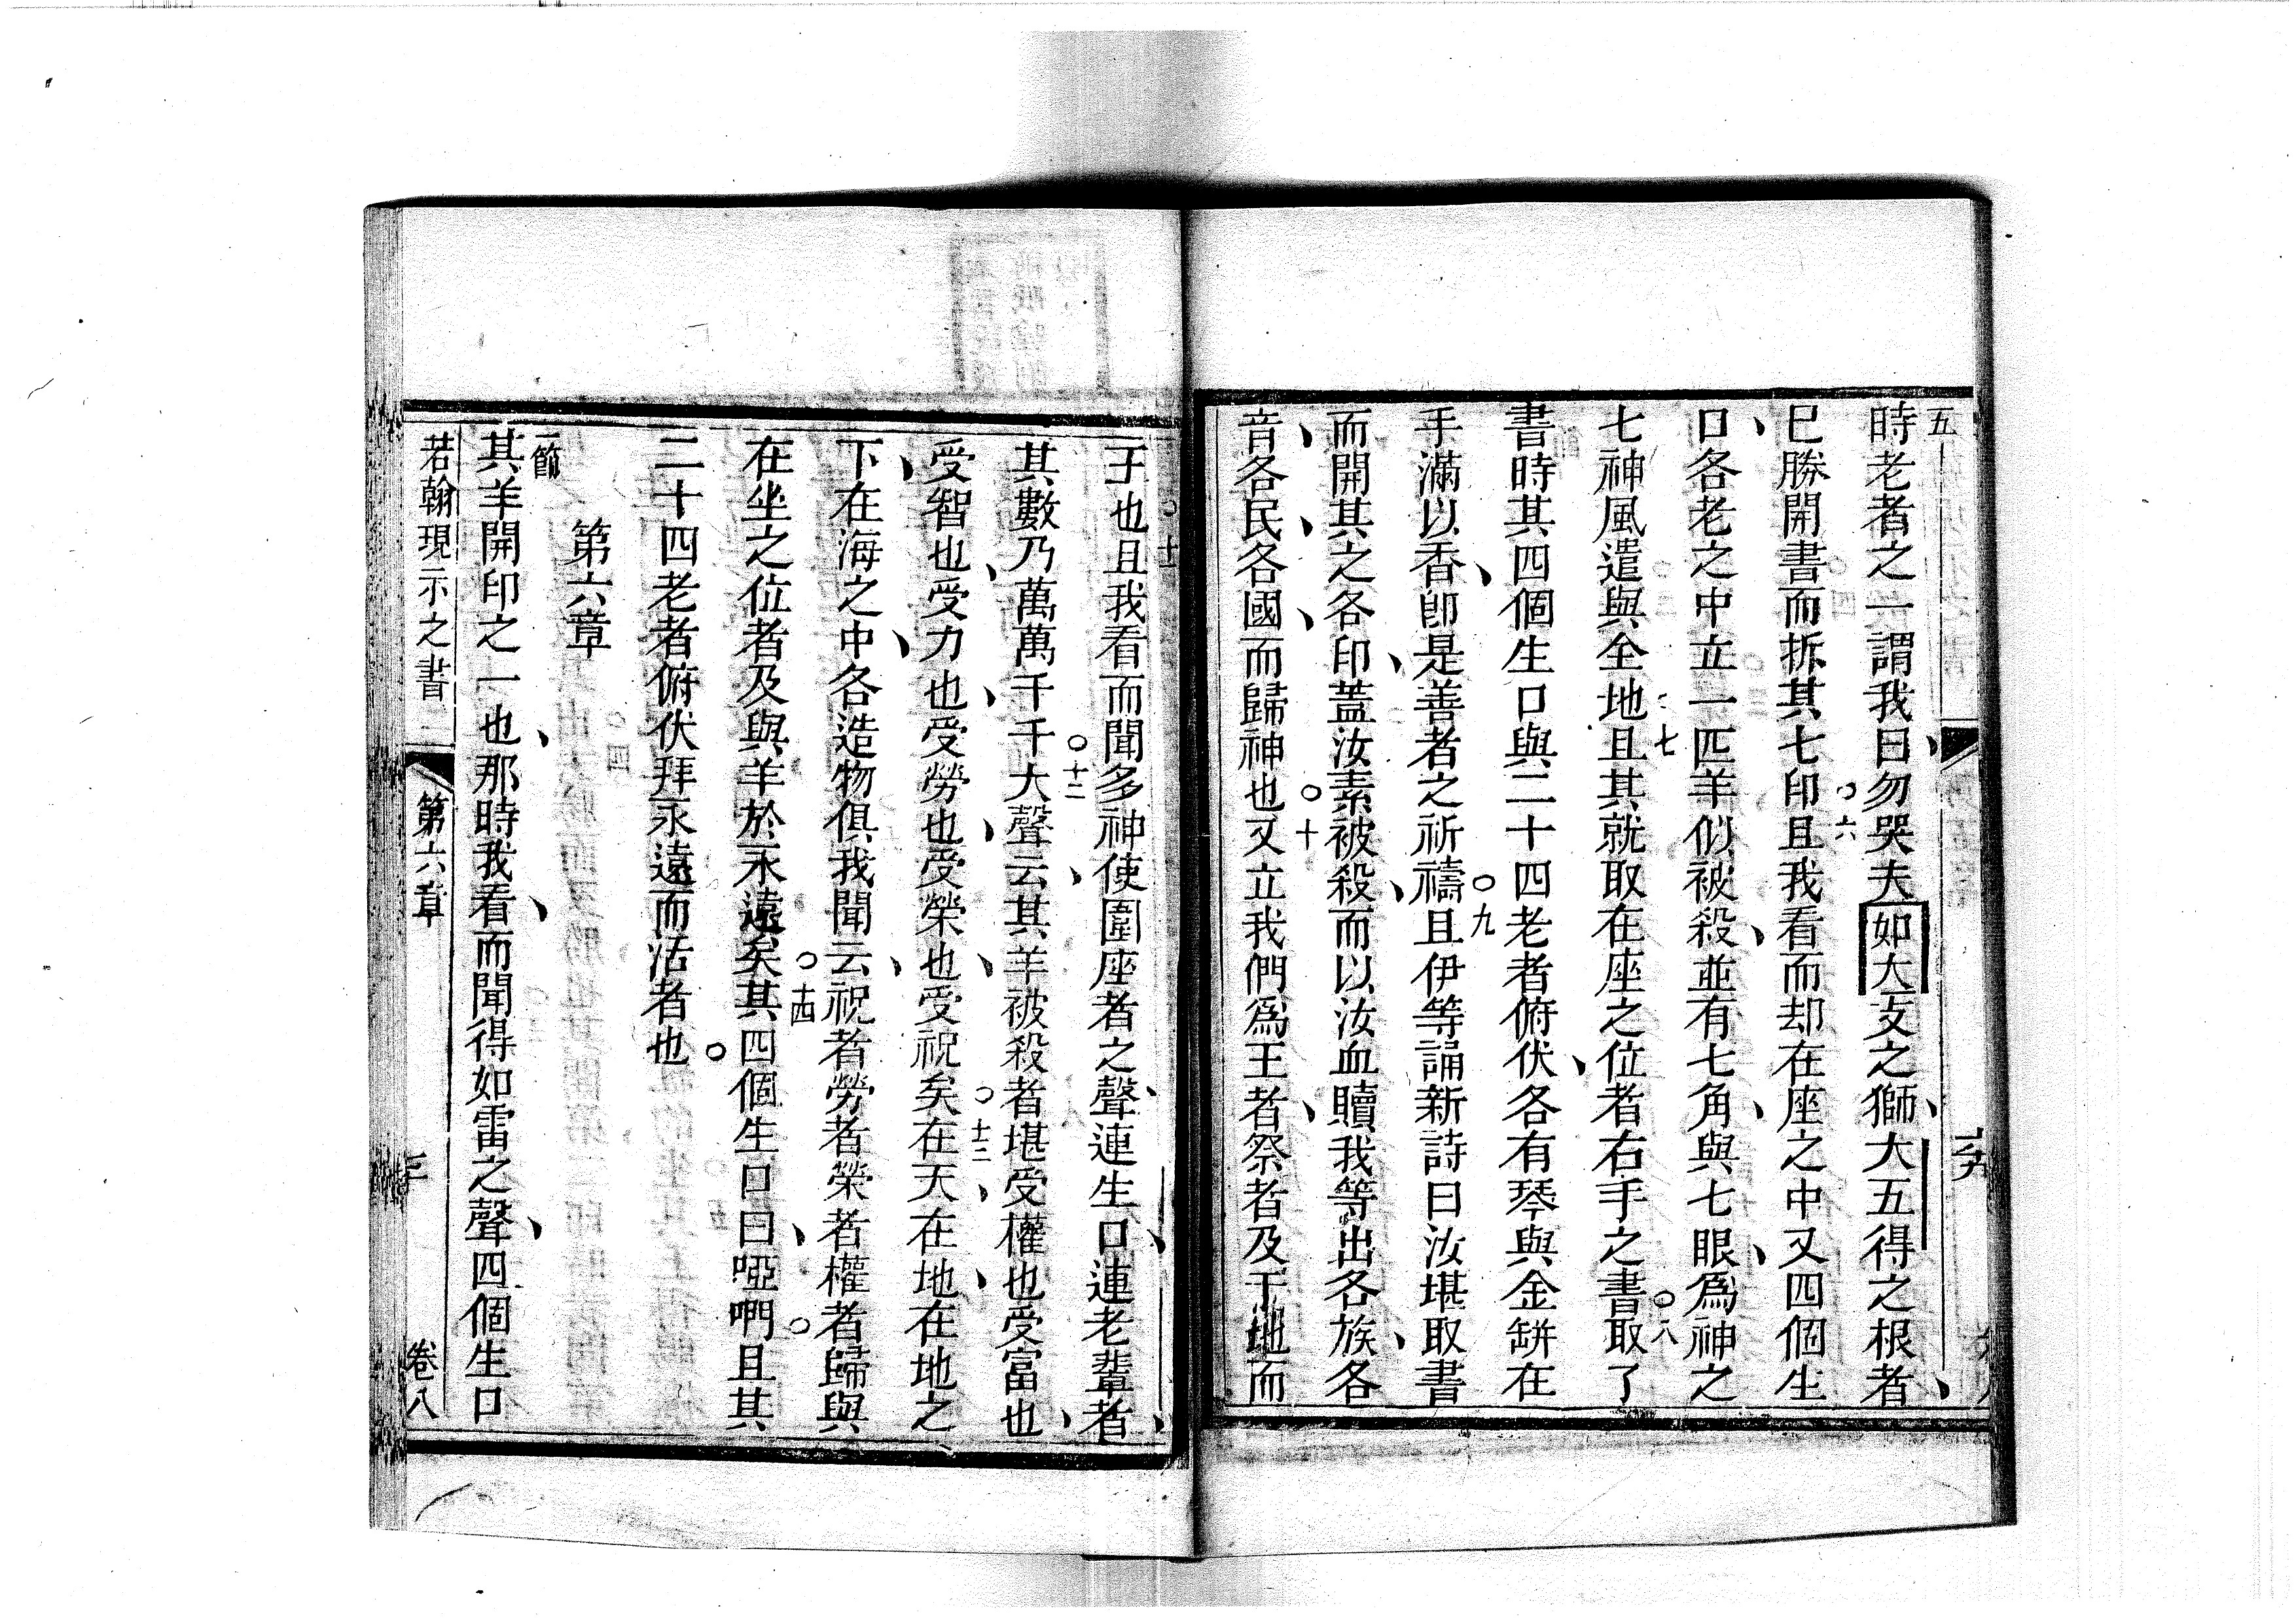 五
時老者之一謂我曰勿哭夫如大支之獅大五得之根者
已勝開書而拆其七印且我看而却在座之中又四個生
六
口各老之中立一匹羊似被殺並有七角與七眼爲神之
七神風遣與全地且其就取在座之位者右手之書取了
七
八
書時其四個生口與二十四老者俯伏各有琴與金缾在
手滿以香卽是善者之祈禱且伊等誦新詩曰汝堪取書
九
而開其之各印蓋汝素被殺而以汝血贖我等出各族各
音各民各國而歸神也又立我們爲王者祭者及于地而
十
王也且我看而聞多神使圍座者之聲連生口連老輩者
十一
其數乃萬萬千千大聲云其羊被殺者堪受權也受富也
十二
受智也受力也受勞也受榮也受祝矣在天在地在地之
十三
下在海之中各造物俱我聞云祝者勞者榮者權者歸與
在坐之位者及與羊於永遠矣其四個生口曰啞啊且其
十四
二十四老者俯伏拜永遠而活者也
第六章
一節
其羊開印之一也那時我看而聞得如雷之聲四個生口
若翰現示之書
第六章
卷八